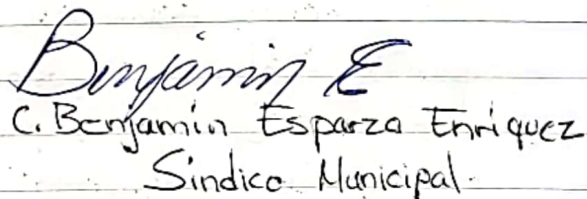 Benjamin E
C. Benjamin Esparza Enriquez
Sindico Municipal